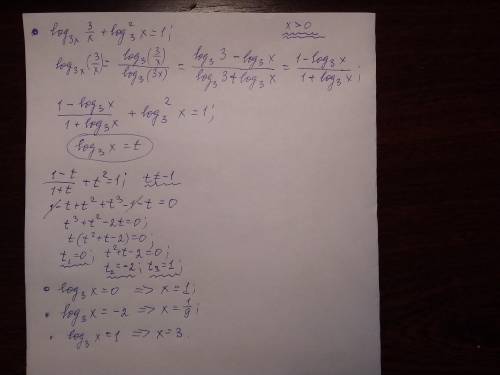 log₃ₓ 3/x + log₃² x = 1; x > 0
log₃ₓ(3/x) = log₃(3/x) / log₃(3x) = (log₃ 3 − log₃ x) / (log₃ 3 + log₃ x) = (1 − log₃ x) / (1 + log₃ x);
(1 − log₃ x) / (1 + log₃ x) + log₃² x = 1;
log₃ x = t
(1 − t) / (1 + t) + t² = 1;
1 − t + t² + t³ − 1 − t = 0
t³ + t² − 2t = 0;
t(t² + t − 2) = 0;
t₁ = 0; t² + t − 2 = 0;
t₂ = −2; t₃ = 1;
• log₃ x = 0 => x = 1;
• log₃ x = −2 => x = 1/9;
• log₃ x = 1 => x = 3.